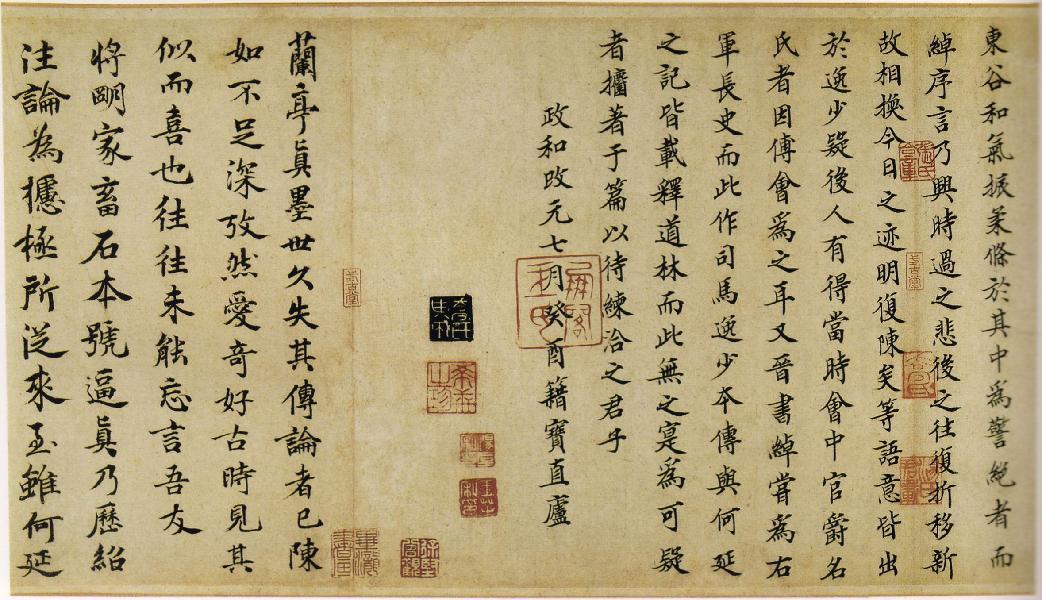 東谷和氣振柔條於其中為警絶者而
綽序言乃興時過之悲後之往復折移新
故相換今日之迹明復陳矣等語意皆出
於逸少疑後人有得當時會中官爵名
氏者因傅會為之耳又晉書綽嘗為右
軍長史而此作司馬逸少本傳與何延
之記皆載釋道林而此無之寔為可疑
者攟著于篇以待練洽之君乎
政和改元七月癸酉籍寶直廬
蘭亭真墨世久失其傳論者已陳
如不足深攷然愛奇好古時見其
似而喜也往往未能忘言吾友
將明家畜石本號逼真乃歷紹
注論為攄極所從來玉雖何延